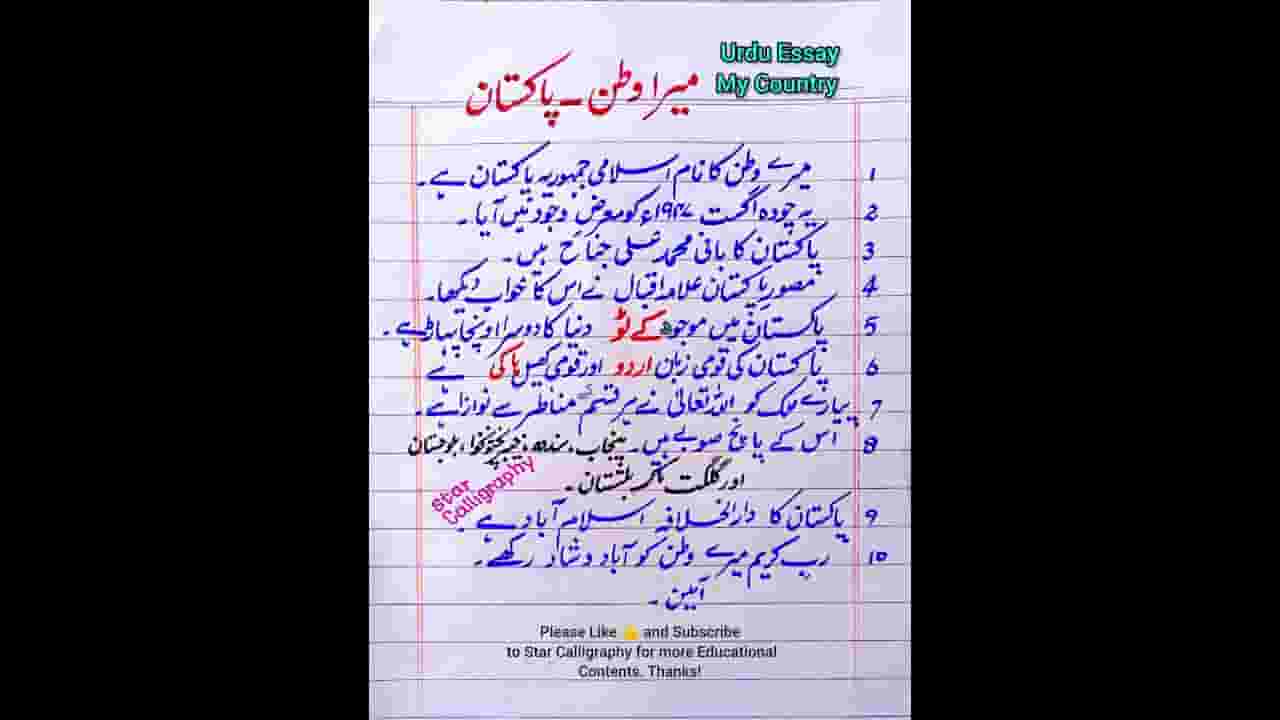 Urdu Essay
My Country
میرا وطن ۔ پاکستان
1 میرے وطن کا نام اسلامی جمہوریہ پاکستان ہے۔
2 یہ چودہ اگست ۱۹۴۷ء کو معرضِ وجود میں آیا۔
3 پاکستان کا بانی محمد علی جناحؒ ہیں۔
4 مصورِ پاکستان علامہ اقبال نے اس کا خواب دیکھا۔
5 پاکستان میں موجود کے ٹو دنیا کا دوسرا اونچا پہاڑ ہے۔
6 پاکستان کی قومی زبان اردو اور قومی کھیل ہاکی ہے
7 پیارے ملک کو اللہ تعالیٰ نے ہر قسم کے مناظر سے نوازا ہے۔
8 اس کے پانچ صوبے ہیں۔ پنجاب، سندھ، خیبرپختونخوا، بلوچستان
اور گلگت بلتستان۔
Star
Calligraphy
9 پاکستان کا دارالخلافہ اسلام آباد ہے۔
10 رب کریم میرے وطن کو آباد و شاد رکھے۔
آمین۔
Please Like 👍 and Subscribe
to Star Calligraphy for more Educational
Contents. Thanks!